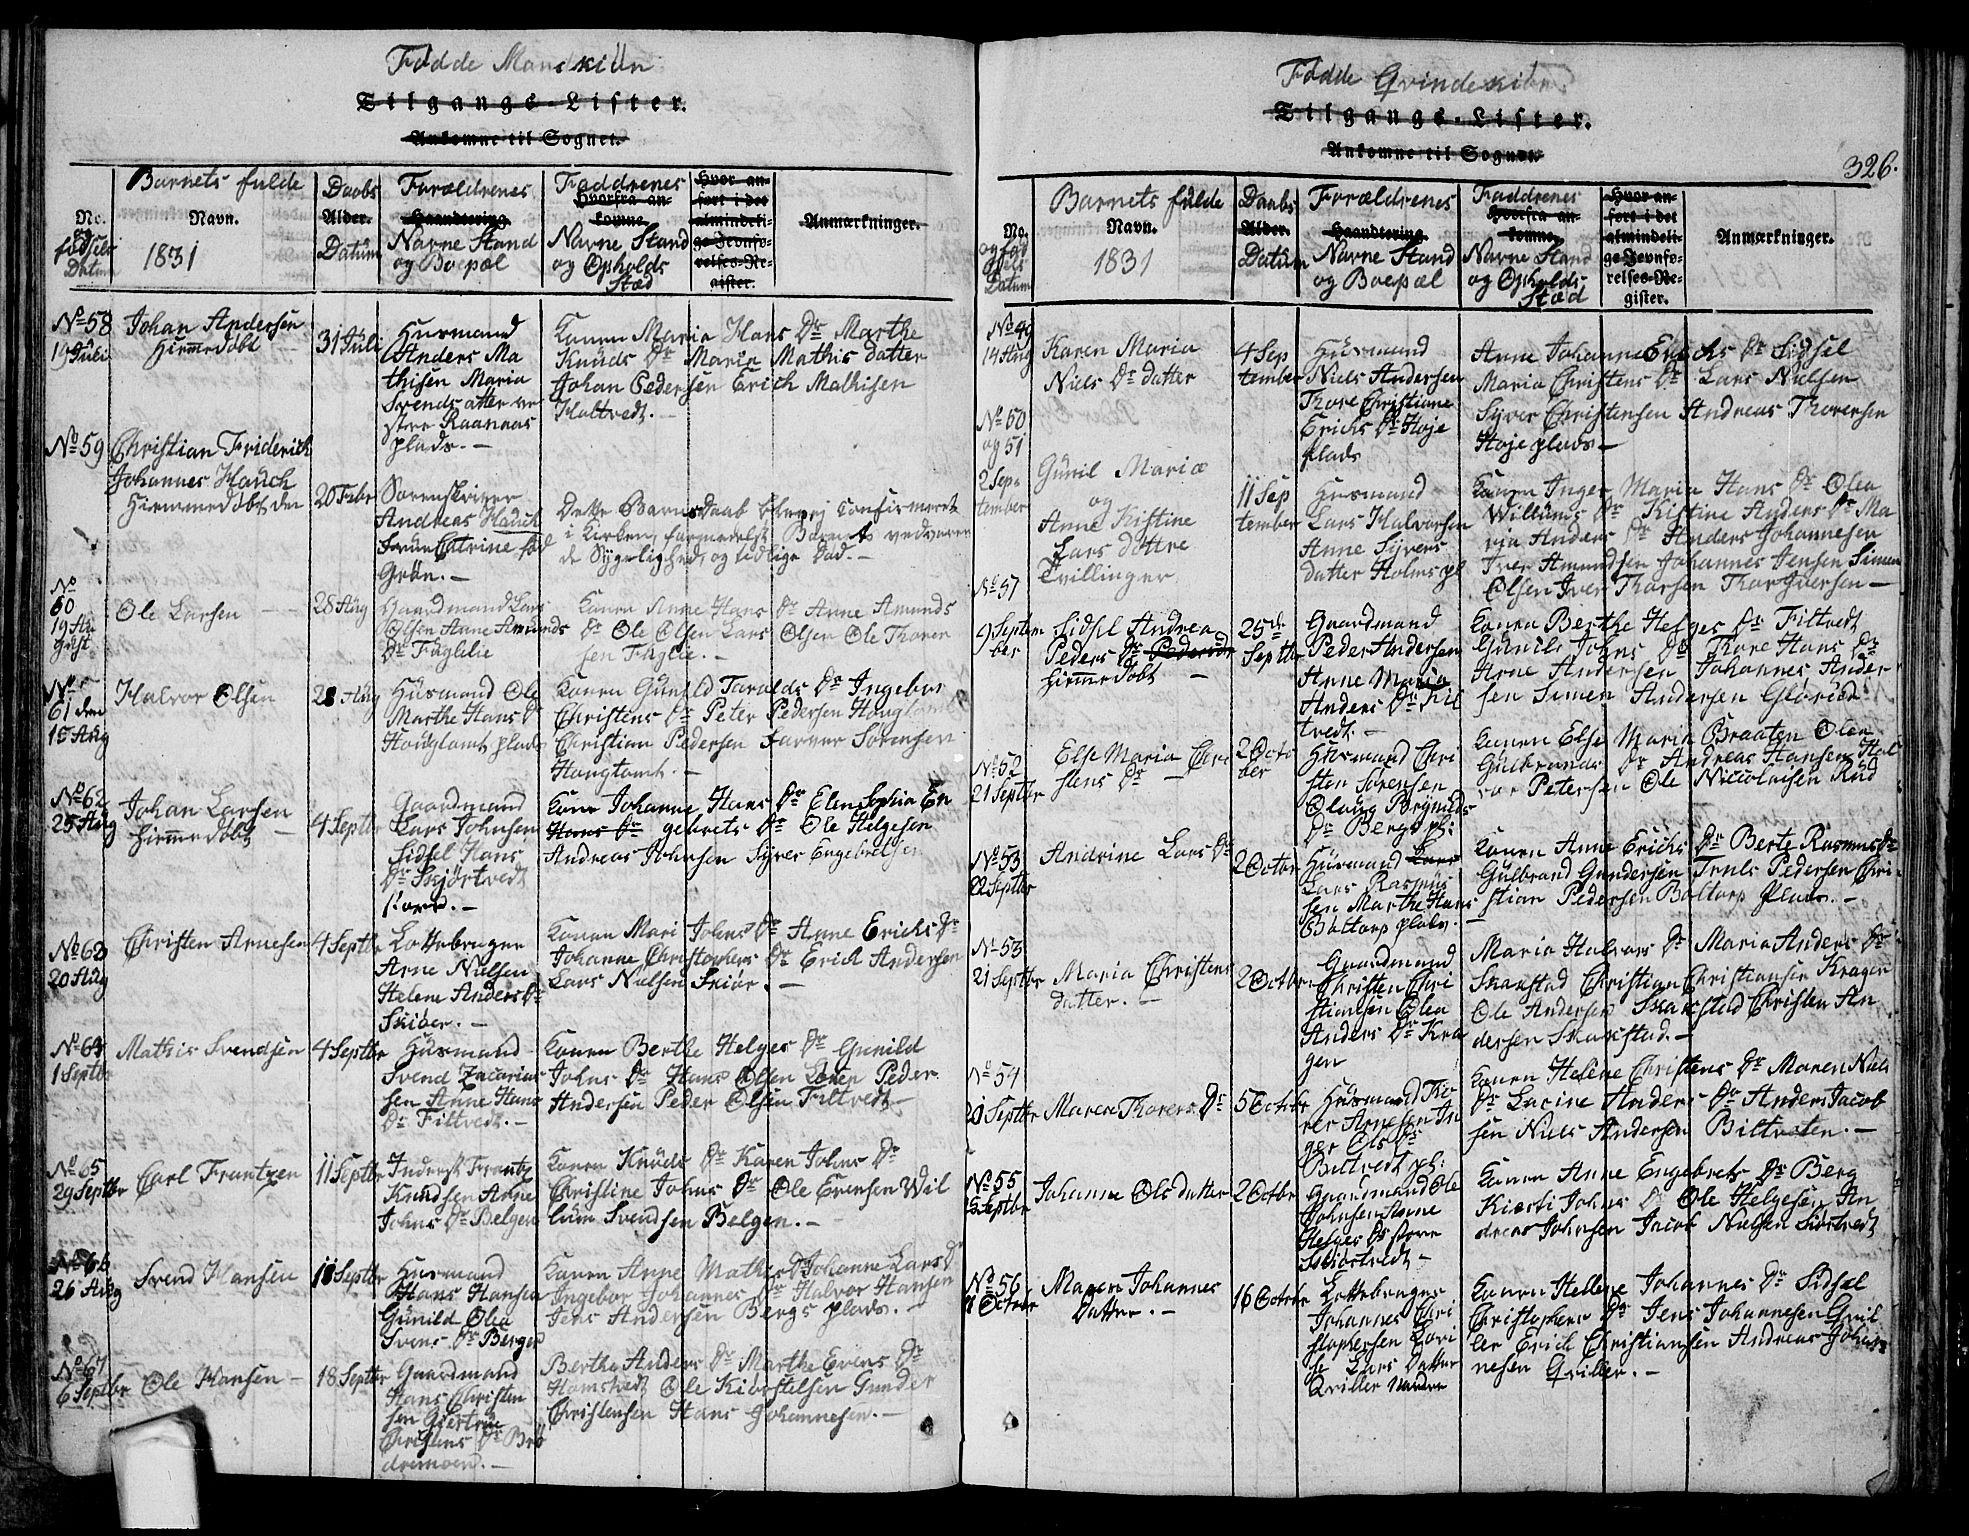 Fødde Mandkiøn
Tilgangs-Lister.
Ankomne til Sognet.
No.
og
fødsels
Datum
Barnets fulde
Navn.
1831
Daabs
Alder.
Datum
Forældrenes
Haandtering
Navne Stand
og Boepæl
Faddrenes
Hvorfra an-
komne
Navne Stand
og Opholds
Stæd
Hvor an-
ført i det
almindeli-
ge Jevnfø-
relses-Re-
gister.
Anmærkninger.
No 58
19 Juli
Johan Andersen
hiemmedøbt
31 Juli
Huusmand
Anders Ma
thisen Maria
Svends atter ve
stre Raanaas
plads. -
Konen Maria Hans Dr Marthe
Knuds Dr Maria Mathis datter
Johan Pedersen Erich Mathisen
Holtvedt. -
No 59
Christian Friderich
Johannes Hauch
hiemmedøbt den
20 Febr
Sorenskriver
Andreas Hauch
Fruue Catrine fød
Grøn. -
Dette Barns Daab blev ej confirmeret
i Kirken, formedelst Barnets vedvaren
de Sygelighed, og tidlige Død. -
No
60
19 Au
gust
Ole Larsen
28 Aug
Gaardmand Lars
Olsen Anne Amunds
Dr Fuglelie
Konen Anne Hans Dr Anne Amunds
Dr Ole Olsen Lars Olsen Ole Thoren
sen Fuglie. -
No
61 den
15 Aug
Halvor Olsen
28 Aug
Huusmand Ole
Marthe Hans Dr
Hougtomt plads
Konen Gunild Taralds Dr Ingebor
Christens Dr Peter Pedersen Hougtomt
Christian Pedersen Farver Sørensen
Hougtomt. -
No 62
25 Aug
Johan Larsen
hiemmedøbt
4 Septbr
Gaardmand
Lars Johnsen
Sidsel Hans
Dr Skjørtvedt
store. -
Kone Johanne Hans Dr Elen Sophia En
Hans Dr gebrets Dr Ole Helgesen
Andreas Johnsen Syver Engebretsen
No 63
20 Aug
Christen Arnesen
4 Septbr
Lottebruger
Arne Nielsen
Helene Anders Dr
Skiøer. -
Konen Mari Johns Dr Anne Erichs Dr
Johanne Christophers Dr Erich Andersen
Lars Nielsen Skiør. -
No 64
1 Septbr
Mathis Svendsen
4 Septbr
Huusmand
Svend Zacarias
sen Anne Hans
Dr Filtvedt. -
Konen Berthe Helges Dr Gunild
Johns Dr Hans Olsen Peder
Andersen Peder Olsen Filtvedt -
No 65
29 Septbr
Carl Frantzen
11 Septbr
Inderst Frantz
Knudsen Anne
Johns Dr Belgen
Konen Knuds Dr Karen Johns Dr
Christine Johns Dr Ole Evensen Wil
lum Svendsen Belgen. -
No 66
26 Aug
Svend Hansen
18 Septbr
Huusmand
Hans Hansen
Gunild Olea
Svens Dr Berger
Konen Anne Mathis Dr Johanne Lars Dr
Ingebor Johannes Dr Halvor Hansen
Jens Andersen Bergs plads. -
No 67
6 Septbr
Ole Hansen -
18 Septbr
Gaardmand
Hans Christen
sen Giertrue
Christens Dr Brø
dremoen. -
Berthe Anders Dr Marthe Evens Dr
Homstvedt Ole Kiøstelsen Gunder
Christensen Hans Johannesen. -
Fødde Qvindekiøn
Tilgangs-Lister.
Ankomne til Sognet.
326.
No.
og fød
sels
Datum
Barnets fulde
Navn.
1831
Daabs
Alder.
Datum
Forældrenes
Haandtering
Navne Stand
og Boepæl
Faddrenes
Hvorfra an-
komne
Navne Stand
og Opholds
Stæd
Hvor an-
ført i det
almindeli-
ge Jevnfø-
relses-Re-
gister.
Anmærkninger.
No 49
14 Aug
Karen Maria
Niels Dr datter
4 Sep
tember
Huusmand
Niels Andersen
Thore Christiane
Erichs Dr Høje
plads
Anne Johanne Erichs Dr Sidsel
Maria Christens Dr Lars Nielsen
Syver Christensen Andreas Thoresen
Høje plads -
No 50
og 51
2 Sep
tember
Gunil Maria
og
Anne Kistine
Lars døttre
Tvillinger
11 Sep
tember
Huusmand
Lars Halvorsen
Anne Syvers
datter Holms pl
Konen Inger Maria Hans Dr Olea
Willums Dr Kistine Anders Dr Ma
ria Anders Dr Anders Johannesen
Iver Amundsen Johannes Jensen Simen
Olsen Iver Thorsen Thor Iversen -
No 57
9 Septem
ber
Sidsel Andrea
Peders Dr Pedersdr
hiemmedøbt -
25de
Septbr
Gaardmand
Peder Andersen
Anne Maria
Anders Dr Fil
tvedt. -
Konen Berthe Helges Dr Filtvedt
Gunild Johns Dr Thore Hans Dr
Arne Andersen Johannes Ander
sen Simen Andersen
No 52
21 Septbr
Else Maria Chri
stens Dr -
2 Octo
ber
Huusmand Chri
sten Sørensen
Olaug Brynilds
Dr Bergs pl:
Konen Else Maria Braaten Olea
Gulbrands Dr Andreas Hansen Hal
vor Petersen Ole Nicolaisen Rud
No 53
22 Septbr
Andrine Lars Dr
2 Octbr
Huusmand Lars
Lars Rasmus
sen Marthe Hans
Boltorp plads. -
Konen Anne Erichs Dr Berte Rasmus Dr
Gulbrand Gundersen Truls Pedersen Chri
stian Pedersen Boltorp plads. -
No 53
21 Septbr
Maria Christens
datter. -
2 Octbr
Gaardmand
Christen Chri
stiansen Olea
Anders Dr Kra
gen
Maria Halvors Dr Maria Anders Dr
Skarstad Christian Christiansen Krager
Ole Andersen Skarstad Christen An
dersen Skarstad. -
No 54
20 Septbr
Maren Thorers Dr
5 Octbr
Huusmand Tho
rer Arnesen In
ger Ols Dr
Biltvedt pl:
Konen Helene Christens Dr Maren Niels
Dr Lucine Anders Dr Anders Jacob
sen Niels Andersen Biltveten. -
No 55
Septbr
Johanne Olsdatter
2 Octbr
Gaardmand Ole
Johnsen Anne
Helges Dr store
Skiørtvedt -
Konen Anne Engebrets Dr Berg
Kiersti Johns Dr Ole Helgesen An
dreas Johnsen Jacob Nielsen Siørtvedt
No 56
Octobr
Maren Johannes
Datter. -
16 Octbr
Lottebruger
Johannes Chri
stophersen Lovi
se Lars Datter
Qviller Nordre
Konen Hellene Johannes Dr Sidsel
Christophers Dr Jens Johannesen Qvil
ler Erich Christiansen Andreas Johan
nesen Qviller. -